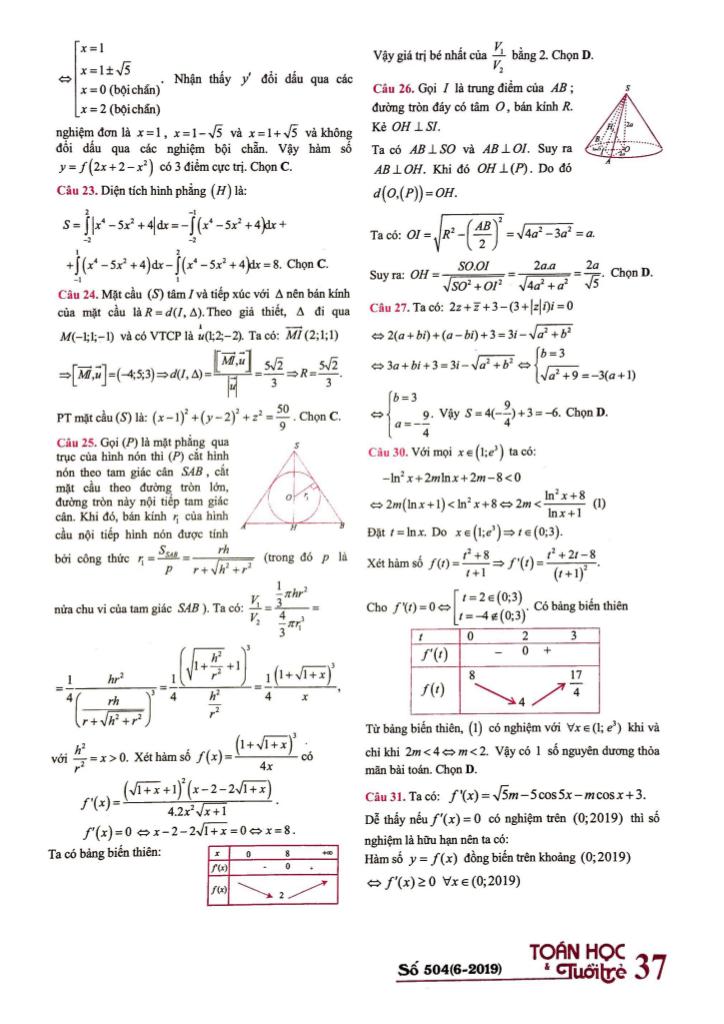 ⇔ [ x = 1
x = 1 ± √5
x = 0 (bội chẵn)
x = 2 (bội chẵn) . Nhận thấy y' đổi dấu qua các
nghiệm đơn là x = 1 , x = 1 − √5 và x = 1 + √5 và không
đổi dấu qua các nghiệm bội chẵn. Vậy hàm số
y = f(2x + 2 − x²) có 3 điểm cực trị. Chọn C.
Câu 23. Diện tích hình phẳng (H) là:
S = ∫_{-2}^{2} |x⁴ − 5x² + 4|dx = −∫_{-2}^{-1} (x⁴ − 5x² + 4)dx +
+∫_{-1}^{1} (x⁴ − 5x² + 4)dx − ∫_{1}^{2} (x⁴ − 5x² + 4)dx = 8. Chọn C.
Câu 24. Mặt cầu (S) tâm I và tiếp xúc với Δ nên bán kính
của mặt cầu là R = d(I, Δ). Theo giả thiết, Δ đi qua
M(−1;1;−1) và có VTCP là u(1;2;−2). Ta có: MI (2;1;1)
⇒ [MI,u] = (−4;5;3) ⇒ d(I, Δ) = |[MI,u]| / |u| = 5√2/3 ⇒ R = 5√2/3.
PT mặt cầu (S) là: (x − 1)² + (y − 2)² + z² = 50/9 . Chọn C.
Câu 25. Gọi (P) là mặt phẳng qua
trục của hình nón thì (P) cắt hình
nón theo tam giác cân SAB , cắt
mặt cầu theo đường tròn lớn,
đường tròn này nội tiếp tam giác
cân. Khi đó, bán kính r₁ của hình
cầu nội tiếp hình nón được tính
S
O
r₁
A
H
B
bởi công thức r₁ = S_{SAB}/p = rh/(r + √(h² + r²)) (trong đó p là
nửa chu vi của tam giác SAB ). Ta có: V₁/V₂ = (1/3 πhr²)/(4/3 πr₁³) =
= 1/4 hr²/(rh/(r + √(h² + r²)))³ = 1/4 (√(1 + h²/r²) + 1)³/(h²/r²) = 1/4 (1 + √(1 + x))³/x ,
với h²/r² = x > 0. Xét hàm số f(x) = (1 + √(1 + x))³/4x có
f'(x) = (√(1 + x) + 1)²(x − 2 − 2√(1 + x))/(4.2x²√(x + 1)) .
f'(x) = 0 ⇔ x − 2 − 2√(1 + x) = 0 ⇔ x = 8 .
Ta có bảng biến thiên:
x 0 8 +∞
f'(x) - 0 +
f(x) 2
Vậy giá trị bé nhất của V₁/V₂ bằng 2. Chọn D.
Câu 26. Gọi I là trung điểm của AB ;
đường tròn đáy có tâm O , bán kính R.
Kẻ OH ⊥ SI.
Ta có AB ⊥ SO và AB ⊥ OI. Suy ra
AB ⊥ OH. Khi đó OH ⊥ (P). Do đó
d(O,(P)) = OH.
S
H
2a
B
O
A
Ta có: OI = √(R² − (AB/2)²) = √(4a² − 3a²) = a.
Suy ra: OH = SO.OI/√(SO² + OI²) = 2a.a/√(4a² + a²) = 2a/√5 . Chọn D.
Câu 27. Ta có: 2z + z̄ + 3 − (3 + |z|i)i = 0
⇔ 2(a + bi) + (a − bi) + 3 = 3i − √(a² + b²)
⇔ 3a + bi + 3 = 3i − √(a² + b²) ⇔ { b = 3
√(a² + 9) = −3(a + 1)
⇔ { b = 3
a = −9/4 . Vậy S = 4(−9/4) + 3 = −6. Chọn D.
Câu 30. Với mọi x ∈ (1;e³) ta có:
−ln² x + 2m ln x + 2m − 8 < 0
⇔ 2m(ln x + 1) < ln² x + 8 ⇔ 2m < (ln² x + 8)/(ln x + 1) (1)
Đặt t = ln x. Do x ∈ (1;e³) ⇒ t ∈ (0;3).
Xét hàm số f(t) = (t² + 8)/(t + 1) ⇒ f'(t) = (t² + 2t − 8)/(t + 1)² .
Cho f'(t) = 0 ⇔ [ t = 2 ∈ (0;3)
t = −4 ∉ (0;3) . Có bảng biến thiên
t 0 2 3
f'(t) − 0 +
f(t) 8 4 17/4
Từ bảng biến thiên, (1) có nghiệm với ∀x ∈ (1; e³) khi và
chỉ khi 2m < 4 ⇔ m < 2. Vậy có 1 số nguyên dương thỏa
mãn bài toán. Chọn D.
Câu 31. Ta có: f'(x) = √5m − 5cos5x − mcosx + 3.
Dễ thấy nếu f'(x) = 0 có nghiệm trên (0;2019) thì số
nghiệm là hữu hạn nên ta có:
Hàm số y = f(x) đồng biến trên khoảng (0;2019)
⇔ f'(x) ≥ 0 ∀x ∈ (0;2019)
Số 504(6-2019)
TOÁN HỌC
& Tuổi trẻ 37